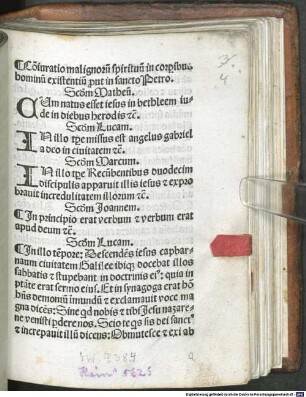 ¶Cõiuratio malignorũ spirituũ in corpibus
hominũ existentiũ put in sancto Petro.
Scõm Matheũ.
CUm natus esset iesus in bethleem iu-
de in diebus herodis ⁊c̃.
Scõm Lucam.
IN illo tpe missus est angelus gabriel
a deo in ciuitatem ⁊c̃.
Scõm Marcum.
IN illo tpe Recũbentibus duodecim
discipulis apparuit illis iesus ⁊ expro
brauit incredulitatem illorũ ⁊c̃.
Scõm Joannem.
¶In principio erat verbum ⁊ verbum erat
apud deum ⁊c̃.
Scõm Lucam.
¶In illo tẽpore: Descendẽs iesus caphar-
naum ciuitatem Galilee ibiq; docebat illos
sabbatis ⁊ stupebant in doctrina ei⁹: quia in
ptãte erat sermo eius. Et in synagoga erat hõ
hñs demoniũ imundũ ⁊ exclamauit voce ma
gna dicẽs: Sine qd nobis ⁊ tibi Jesu nazare-
ne venisti pdere nos. Scio te qs sis dei sanct⁹
⁊ increpauit illũ dicens: Obmutesce ⁊ exi ab
4
Hain 5625